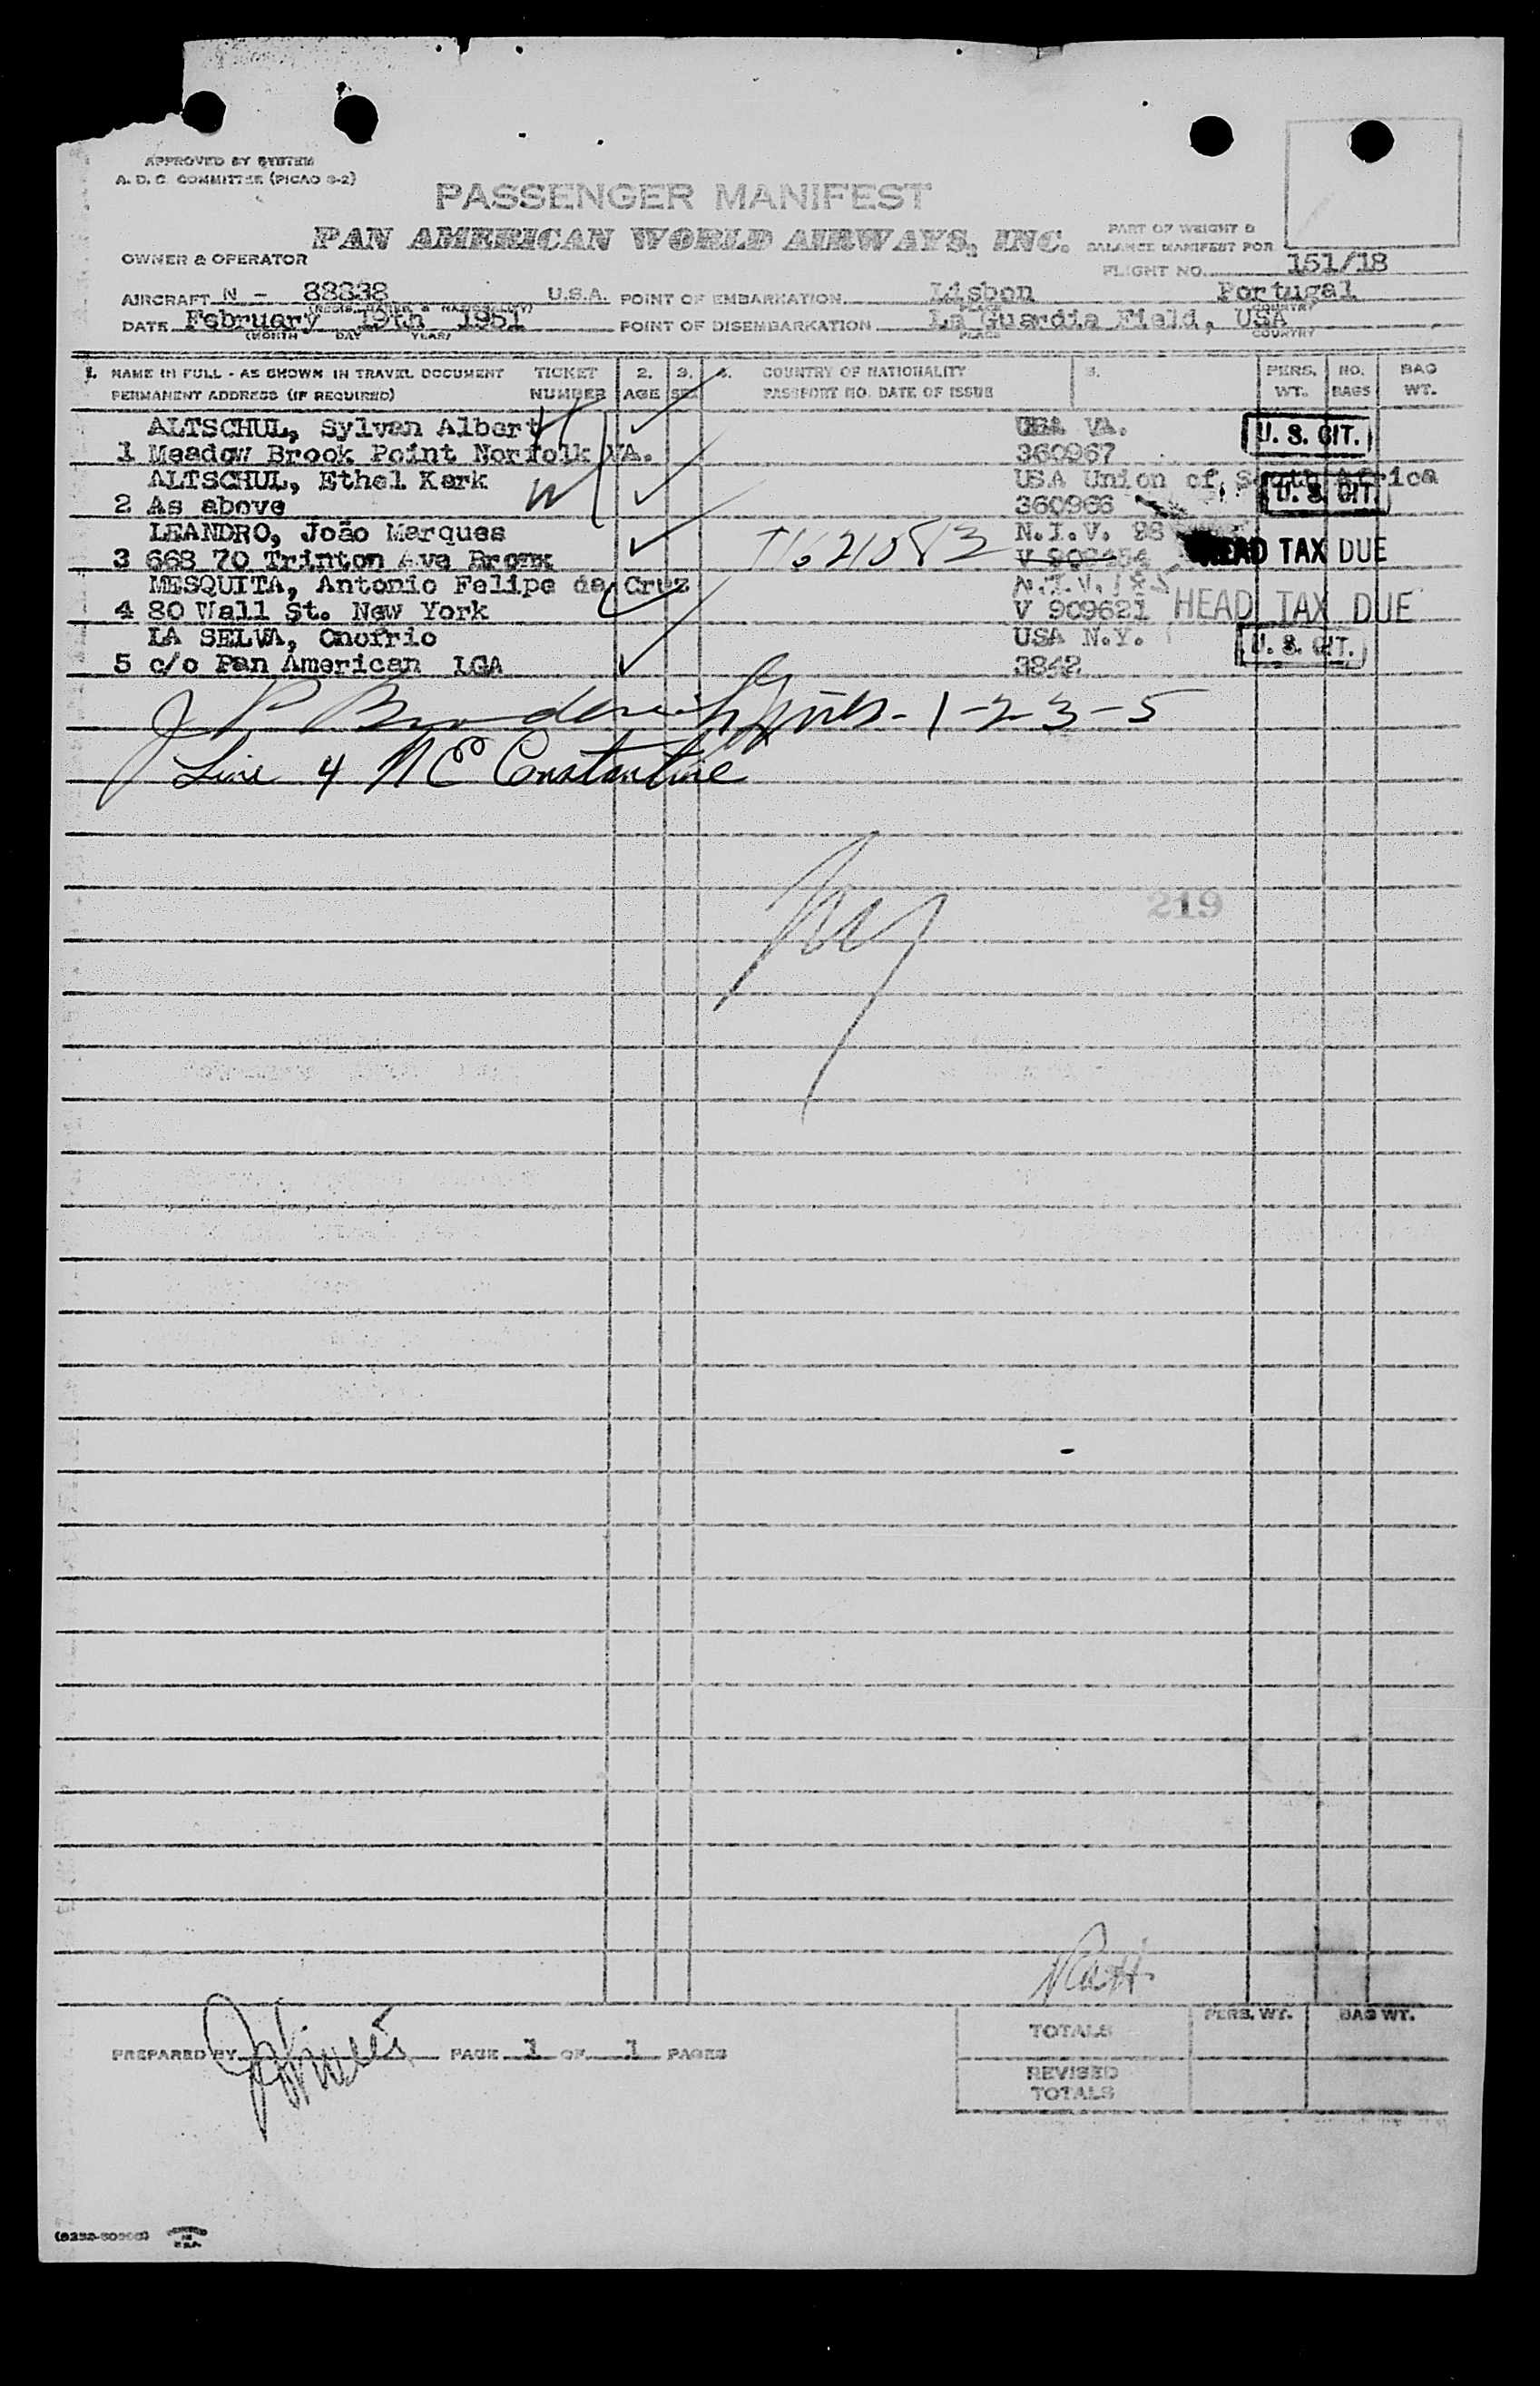 APPROVED BY SYSTEM
A. D. C. COMMITTEE (PICAO S-2)
PASSENGER MANIFEST
PAN AMERICAN WORLD AIRWAYS, INC.
PART OF WEIGHT &
BALANCE MANIFEST FOR
OWNER & OPERATOR
FLIGHT NO. 151/18
AIRCRAFT N - 88838 U.S.A. POINT OF EMBARKATION Lisbon Portugal
DATE February 19th 1951 POINT OF DISEMBARKATION La Guardia Field, USA
(MONTH DAY YEAR) PLACE COUNTRY
1. NAME IN FULL - AS SHOWN IN TRAVEL DOCUMENT TICKET 2. 3. 4. COUNTRY OF NATIONALITY 5. PERS. NO. BAG
PERMANENT ADDRESS (IF REQUIRED) NUMBER AGE SEX PASSPORT NO. DATE OF ISSUE WT. BAGS WT.
ALTSCHUL, Sylvan Albert USA VA. U. S. CIT.
1 Meadow Brook Point Norfolk VA. 360967
ALTSCHUL, Ethel Kark USA Union of South Africa
2 As above 360966 U. S. CIT.
LEANDRO, João Marques N.I.V. 98
3 668 70 Trinton Ave Bronx HEAD TAX DUE
MESQUITA, Antonio Felipe da Cruz N.I.V.
4 80 Wall St. New York V 909621 HEAD TAX DUE
LA SELVA, Onofrio USA N.Y. U. S. CIT.
5 c/o Pan American LGA 3842
J P Broderick Lines - 1-2-3-5
Line 4 N E Constantine
219
PREPARED BY PAGE 1 OF 1 PAGES
TOTALS PERS. WT. BAG WT.
REVISED
TOTALS
PRINTED
IN
U.S.A.